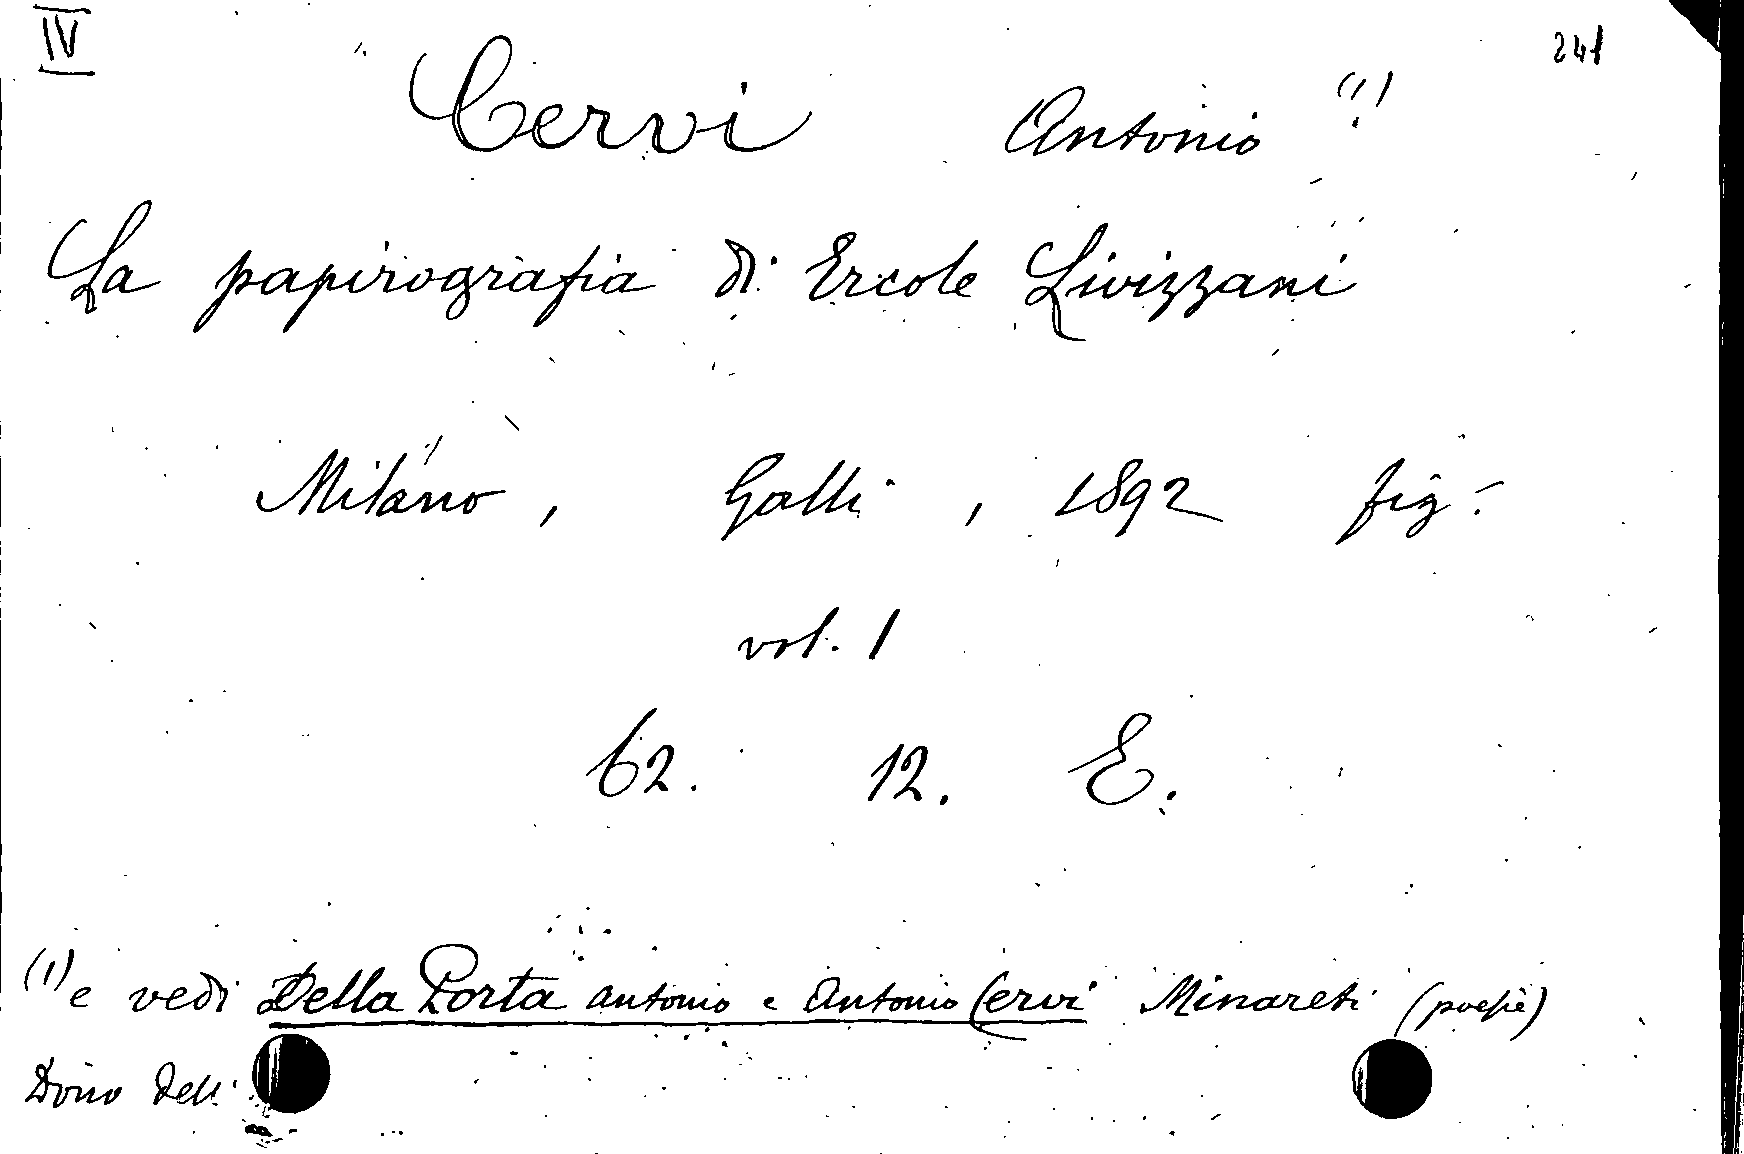 IV 241
Cervi Antonio (1)
La papirografia di Ercole Livizzani
Milano, Galli, 1892 fig.
vol. 1
62. 12. E.
(1) e vedi Della Porta Antonio e Antonio Cervi Minareti (poesie)
Dono dell'